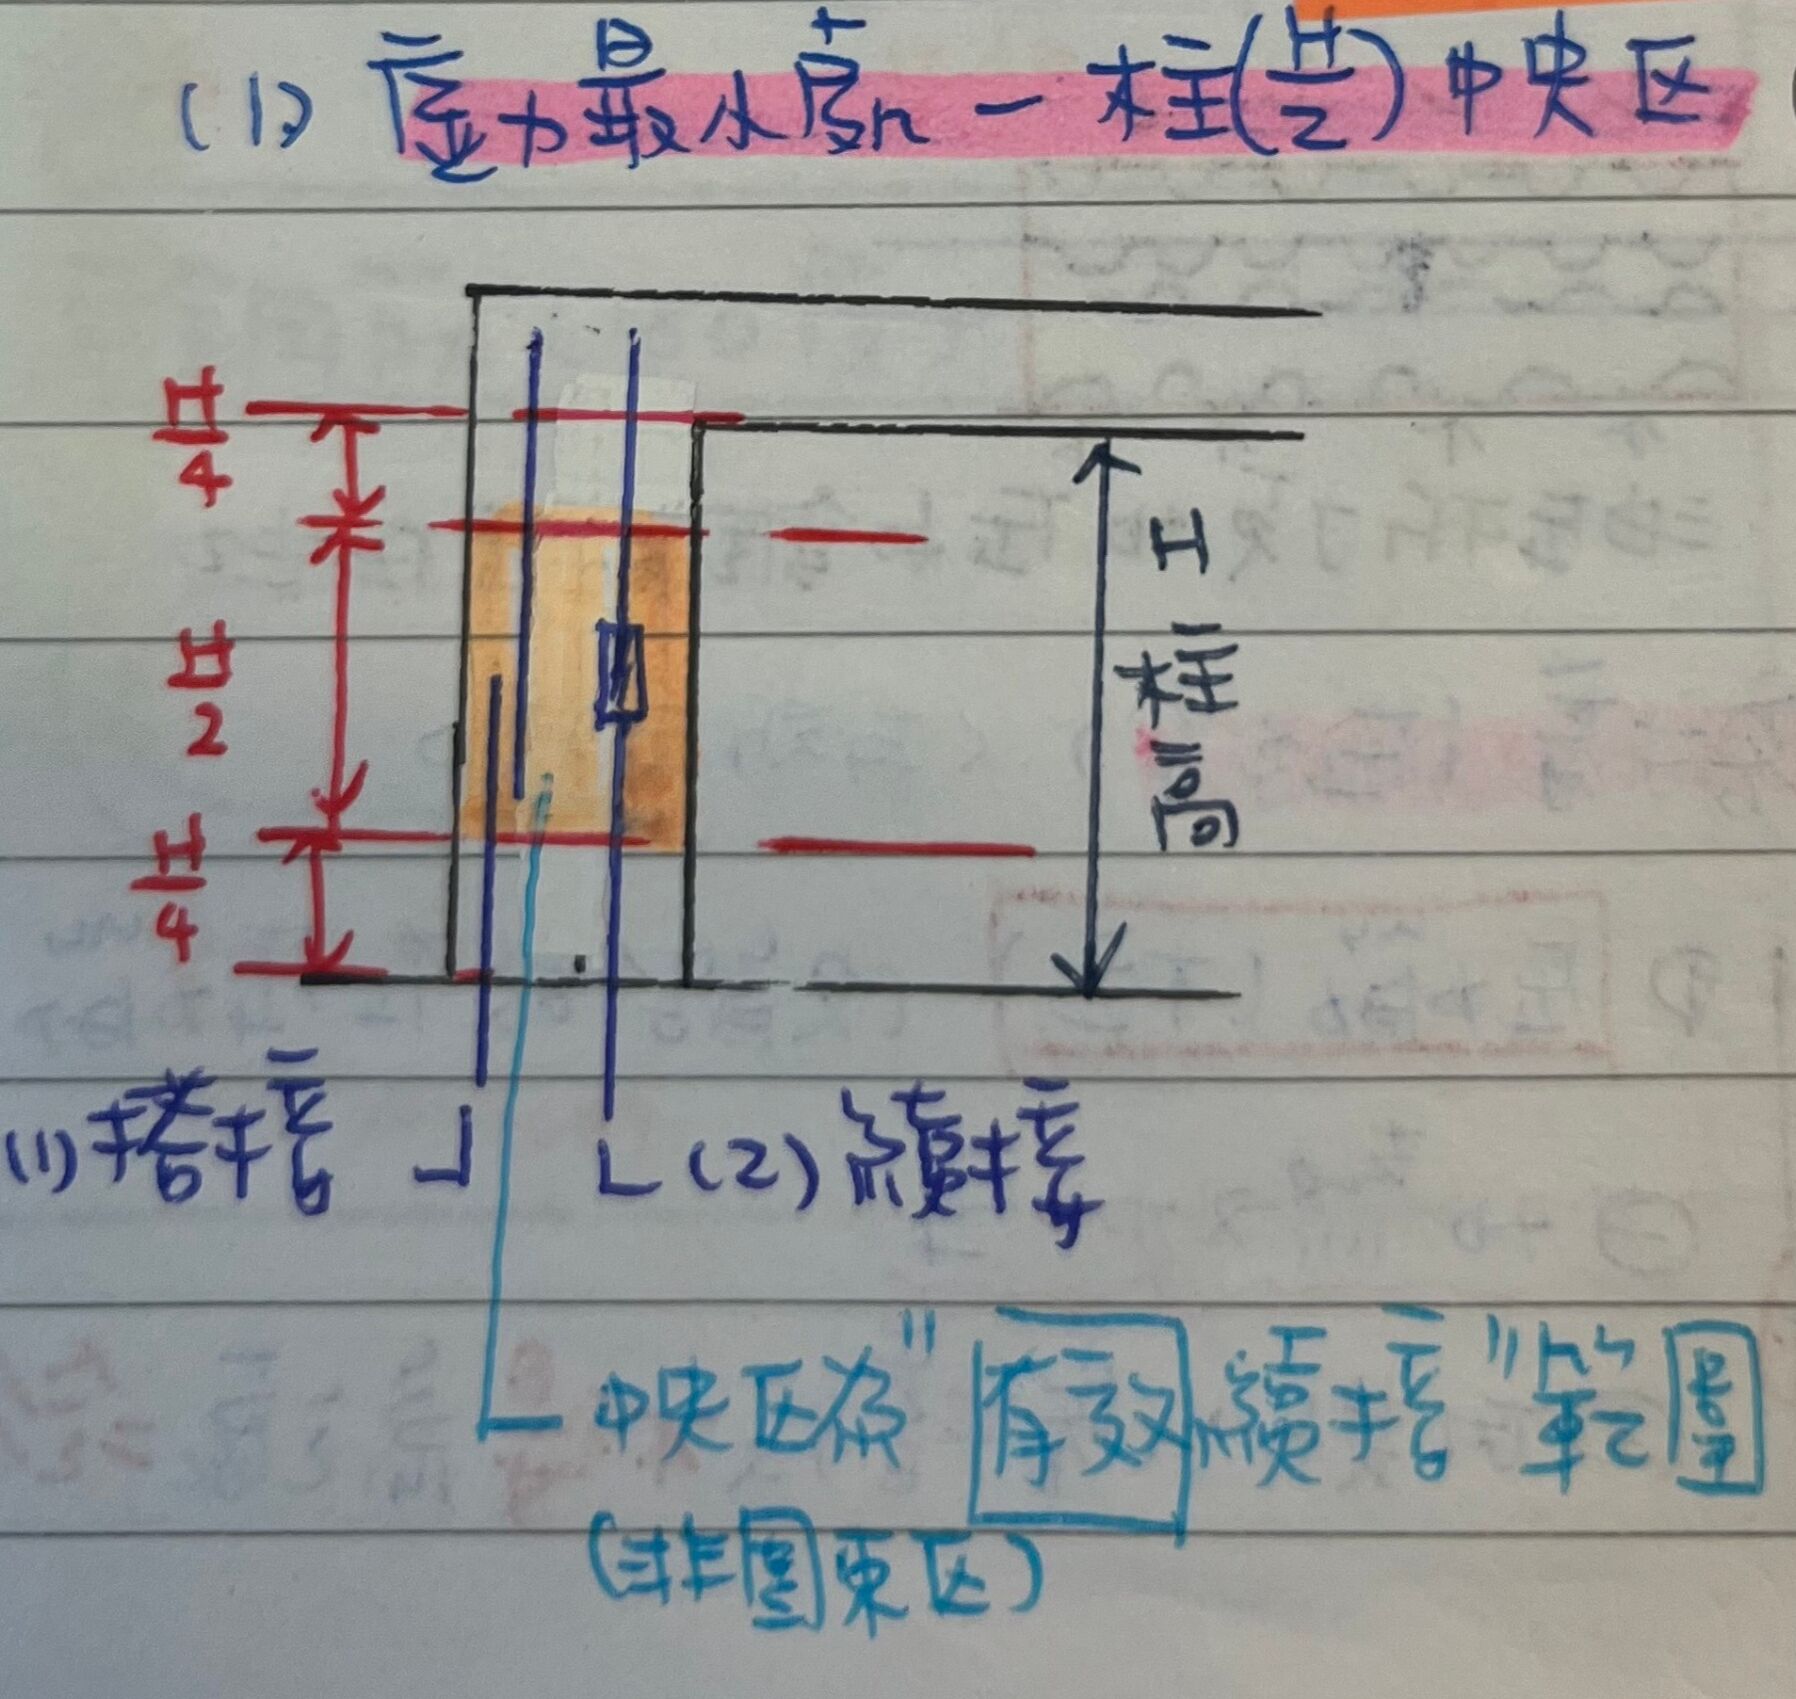 (1) 應力最小處 - 柱(H/2)中央区
H/4
H/2
H/4
H
柱
高
(1)搭接
(2)續接
中央区為"有效續接"範圍
(非圍束区)